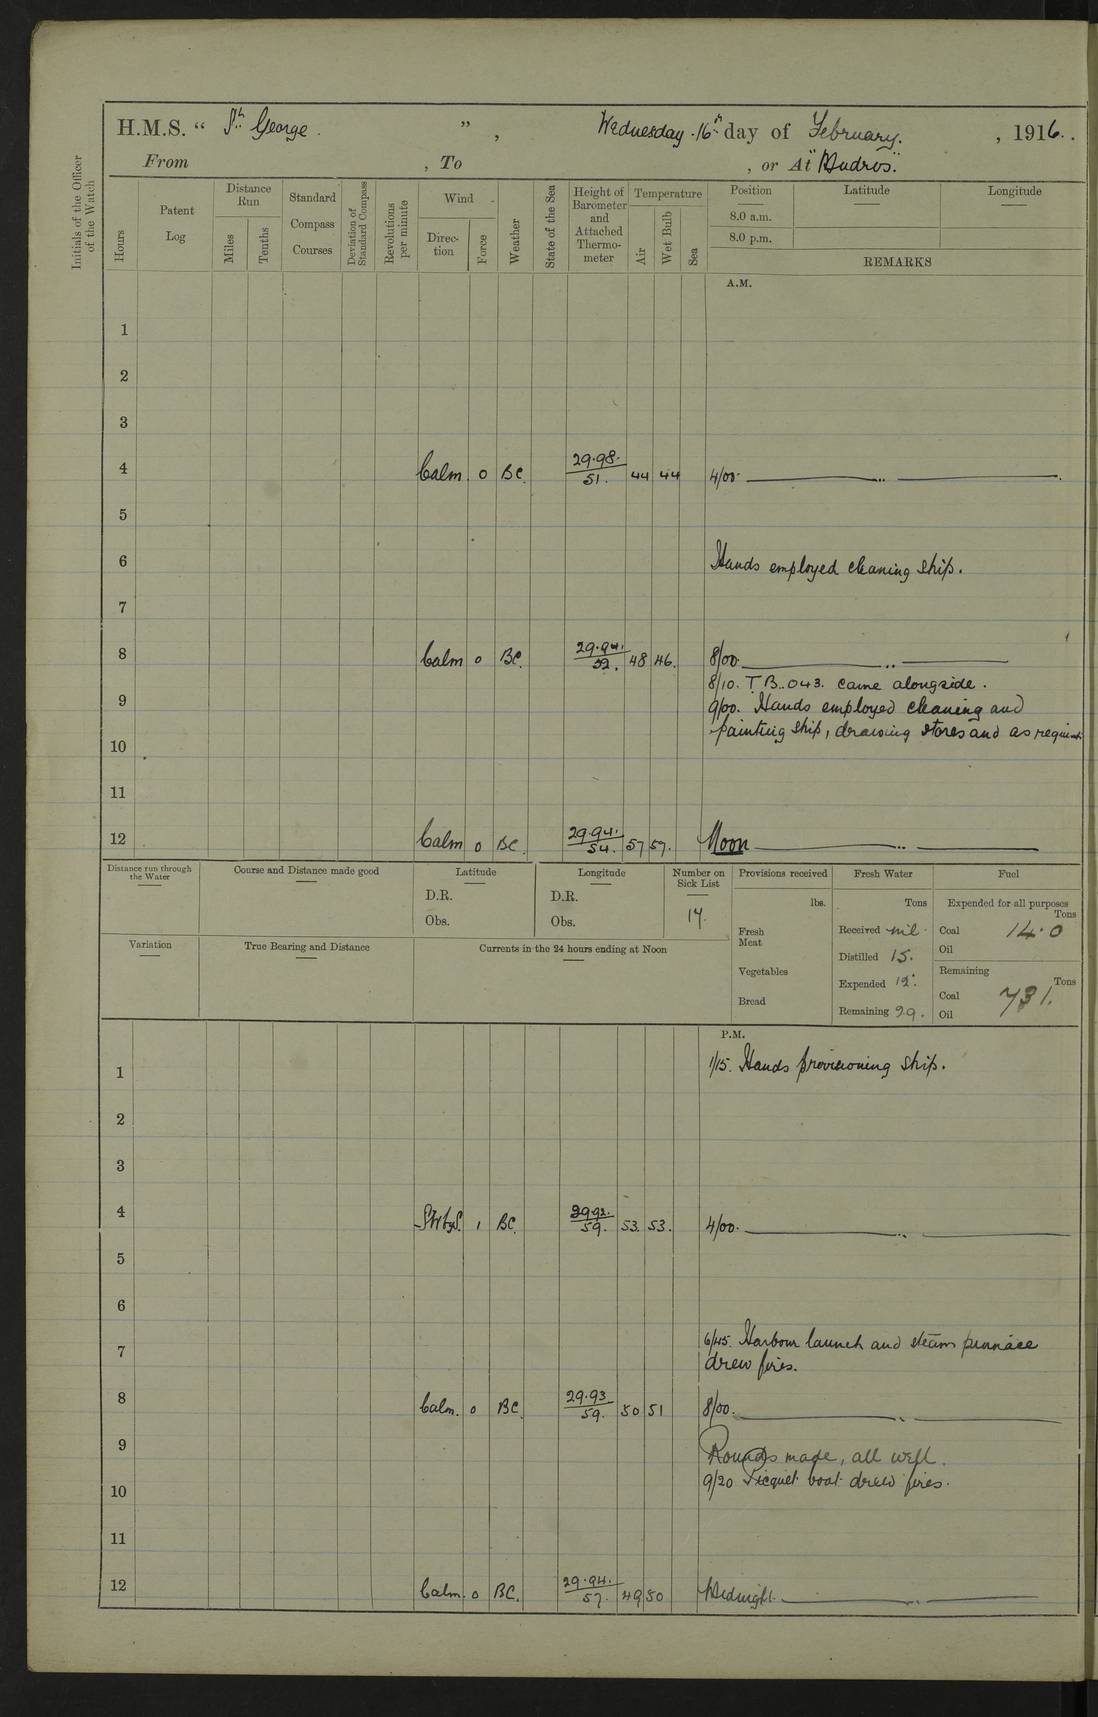 H.M.S. “ St. George. ” , Wednesday 16th day of February. , 1916.
From , To , or At "Mudros".
Initials of the Officer of the Watch
Hours
Patent Log
Distance Run
Miles
Tenths
Standard Compass Courses
Deviation of Standard Compass
Revolutions per minute
Wind
Direction
Force
Weather
State of the Sea
Height of Barometer and Attached Thermometer
Temperature
Air
Wet Bulb
Sea
Position Latitude Longitude
8.0 a.m.
8.0 p.m.
REMARKS
A.M.
1
2
3
4 Calm 0 BC. 29.98. 51. 44 44 4/00. ..
5
6 Hands employed cleaning ship.
7
8 Calm 0 BC. 29.94. 52. 48 46. 8/00. ..
8/10. T.B. 043. came alongside.
9 9/00. Hands employed cleaning and
painting ship, drawing stores and as requisite
10
11
12 Calm 0 BC. 29.94. 54. 57 57. Noon ..
Distance run through the Water
Course and Distance made good
Latitude
D.R.
Obs.
Longitude
D.R.
Obs.
Number on Sick List
14.
Provisions received
lbs.
Fresh Meat
Vegetables
Bread
Fresh Water
Tons
Received nil.
Distilled 15.
Expended 12.
Remaining 29.
Fuel
Expended for all purposes
Tons
Coal 14.0
Oil
Remaining
Tons
Coal 731.
Oil
Variation
True Bearing and Distance
Currents in the 24 hours ending at Noon
P.M.
1 1/15. Hands provisioning ship.
2
3
4 SWbyS. 1 BC. 29.92. 59. 53. 53. 4/00. ..
5
6
7 6/45. Harbour launch and steam pinnace
drew fires.
8 Calm. 0 BC. 29.93 59. 50 51 8/00. ..
9 Rounds made, all well.
9/20 Picquet boat drew fires.
10
11
12 Calm. 0 BC. 29.94. 57. 49 50 Midnight. ..